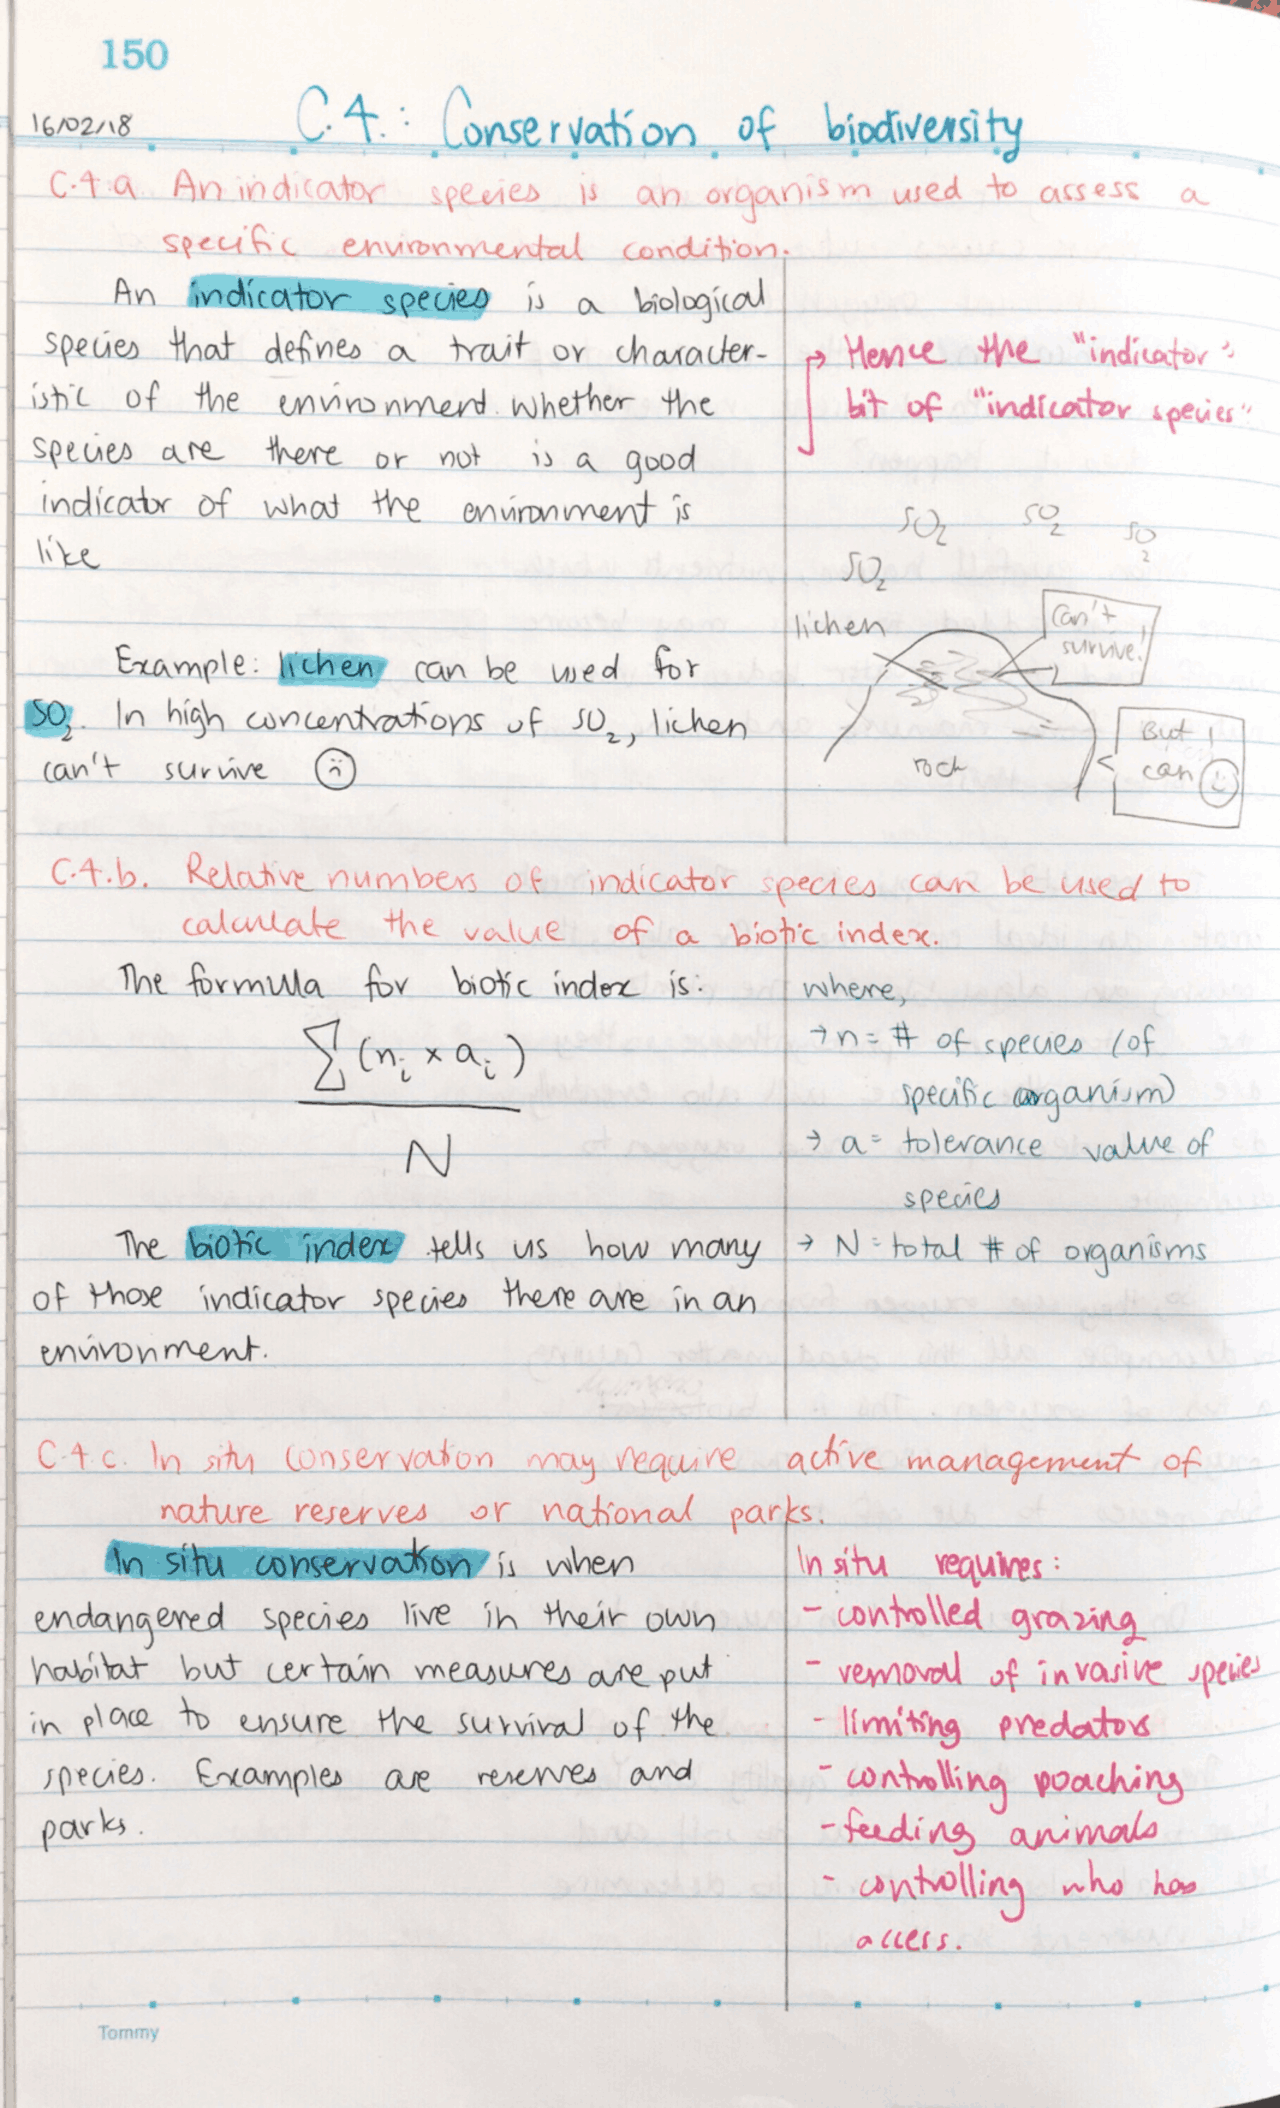 150
16/02/18
C.4.: Conservation of biodiversity
C.4.a An indicator species is an organism used to assess a
specific environmental condition.
An indicator species is a biological
species that defines a trait or character-
istic of the environment. Whether the
species are there or not is a good
indicator of what the environment is
like
Hence the "indicator"
bit of "indicator species"
SO2 SO2 SO2
SO2
lichen
Can't
survive!
rock
But I
can
Example: lichen can be used for
SO2. In high concentrations of SO2, lichen
can't survive
C.4.b. Relative numbers of indicator species can be used to
calculate the value of a biotic index.
The formula for biotic index is:
∑(ni × ai)
N
The biotic index tells us how many
of those indicator species there are in an
environment.
where,
→ n = # of species (of
specific organism)
→ a = tolerance value of
species
→ N = total # of organisms
C.4.c. In situ conservation may require active management of
nature reserves or national parks.
In situ conservation is when
endangered species live in their own
habitat but certain measures are put
in place to ensure the survival of the
species. Examples are reserves and
parks.
In situ requires:
- controlled grazing
- removal of invasive species
- limiting predators
- controlling poaching
- feeding animals
- controlling who has
access.
Tommy